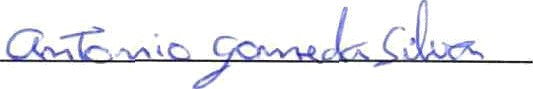 Antonio gomeda Silva